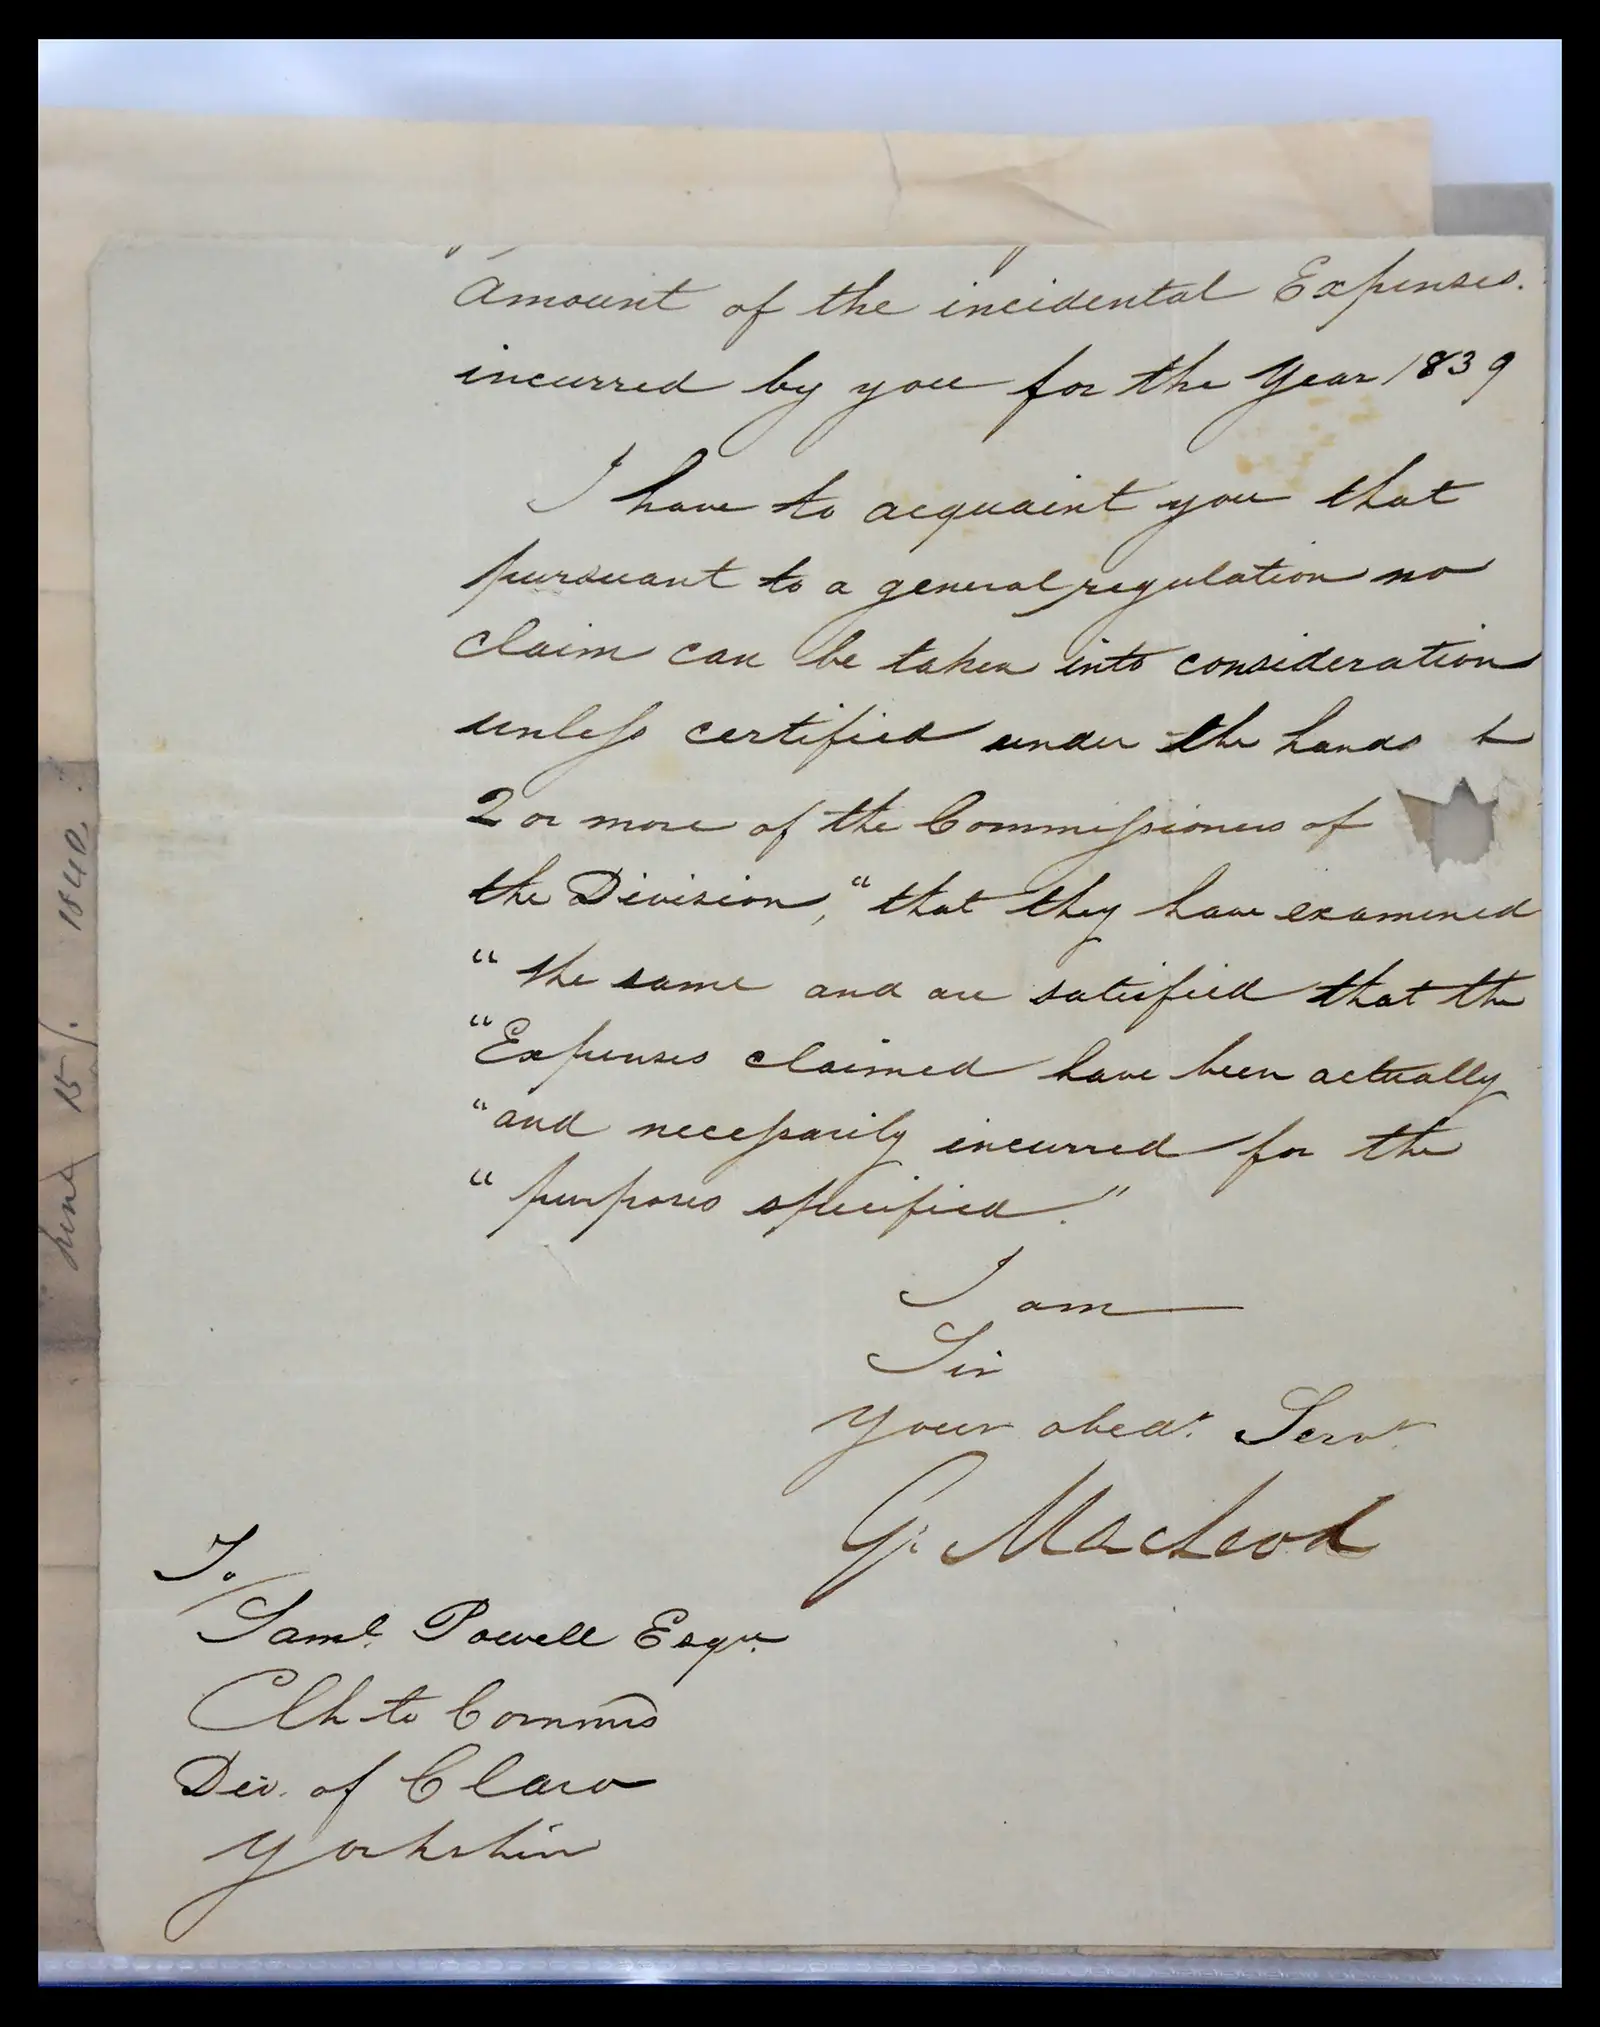 Amount of the incidental Expenses.
incurred by you for the Year 1839
I have to acquaint you that
pursuant to a general regulation no
claim can be taken into consideration
unless certified under the hands
2 or more of the Commissioners of
the Division, "that they have examined
"the same and are satisfied that the
"Expenses claimed have been actually
"and necessarily incurred for the
"purposes specified."
I am
Sir
Your obedt. Servt.
G. MacLeod
To
Saml. Powell Esqre.
Clk to Commrs
Div. of Claro
Yorkshire
June 15/. 1840.